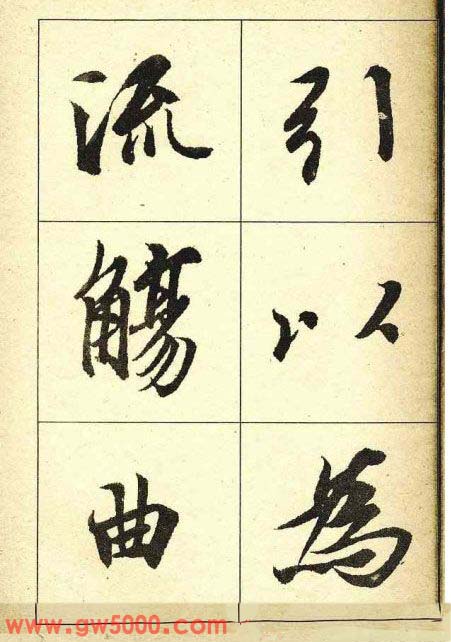 引以爲
流觴曲
www.gw5000.com